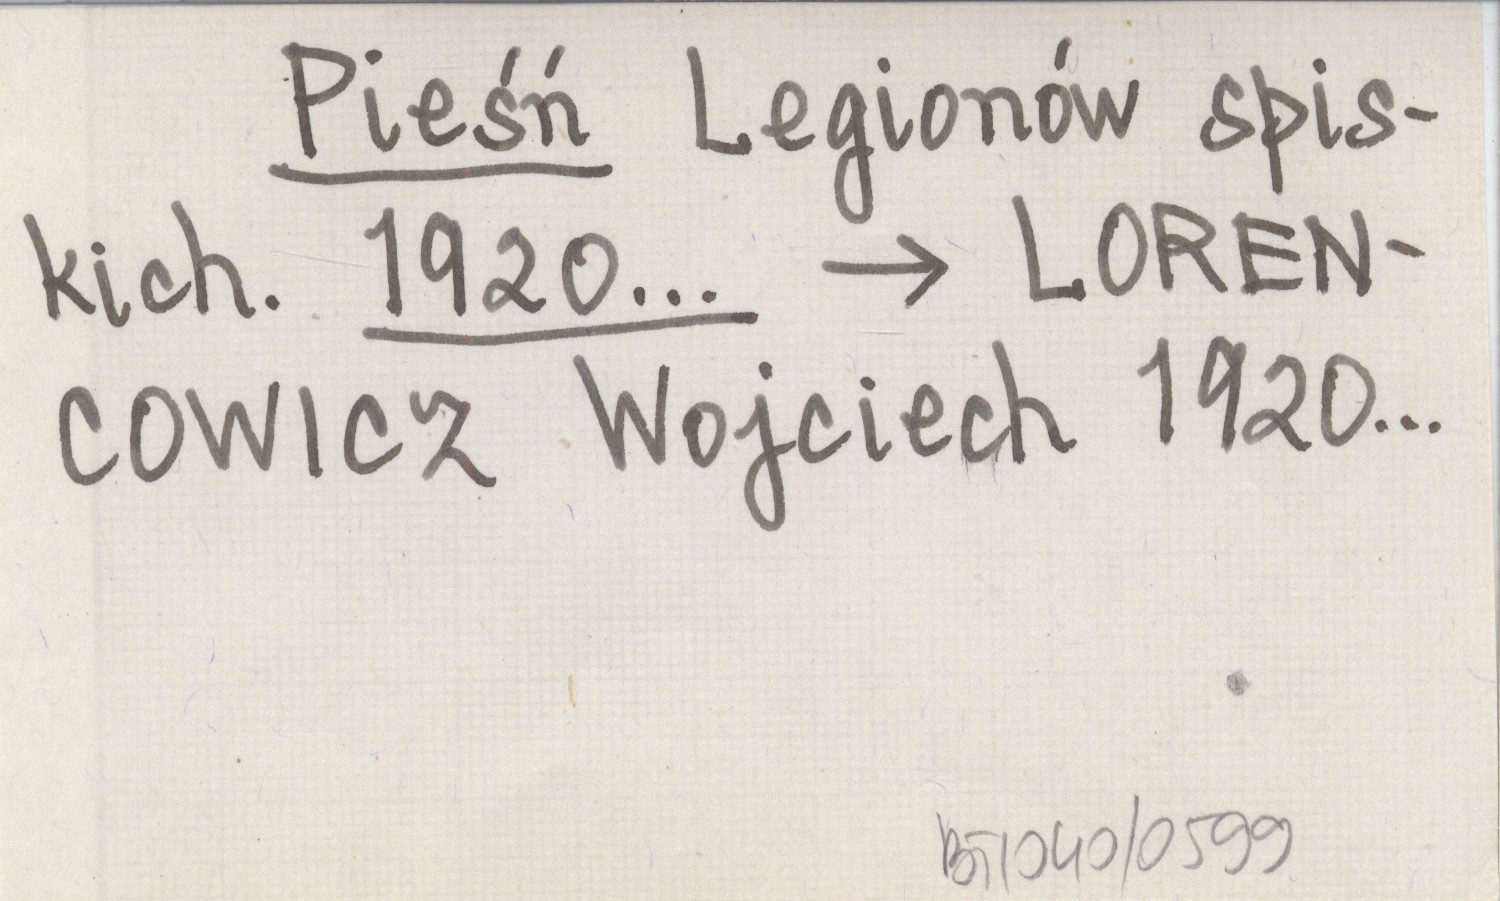 Pieśń Legionów spis-
kich. 1920... → LOREN-
COWICZ Wojciech 1920...
BT/040/0599